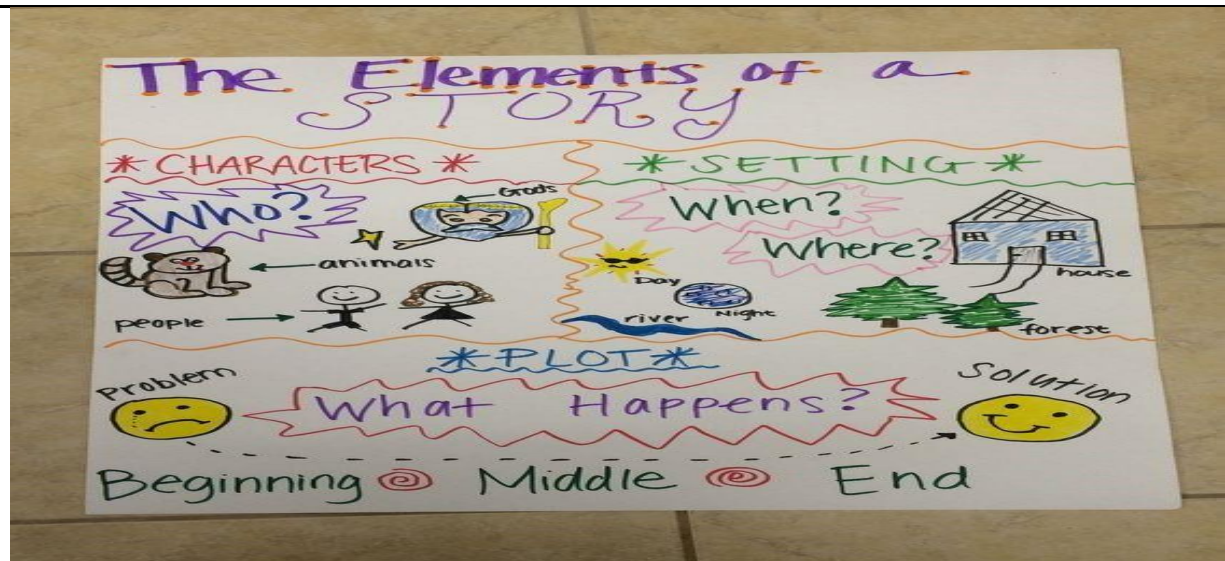 The Elements of a
STORY
* CHARACTERS *
Who?
Gods
animals
people
* SETTING *
When?
Where?
house
Day
Night
river
forest
* PLOT *
Problem
What Happens?
Solution
Beginning Middle End